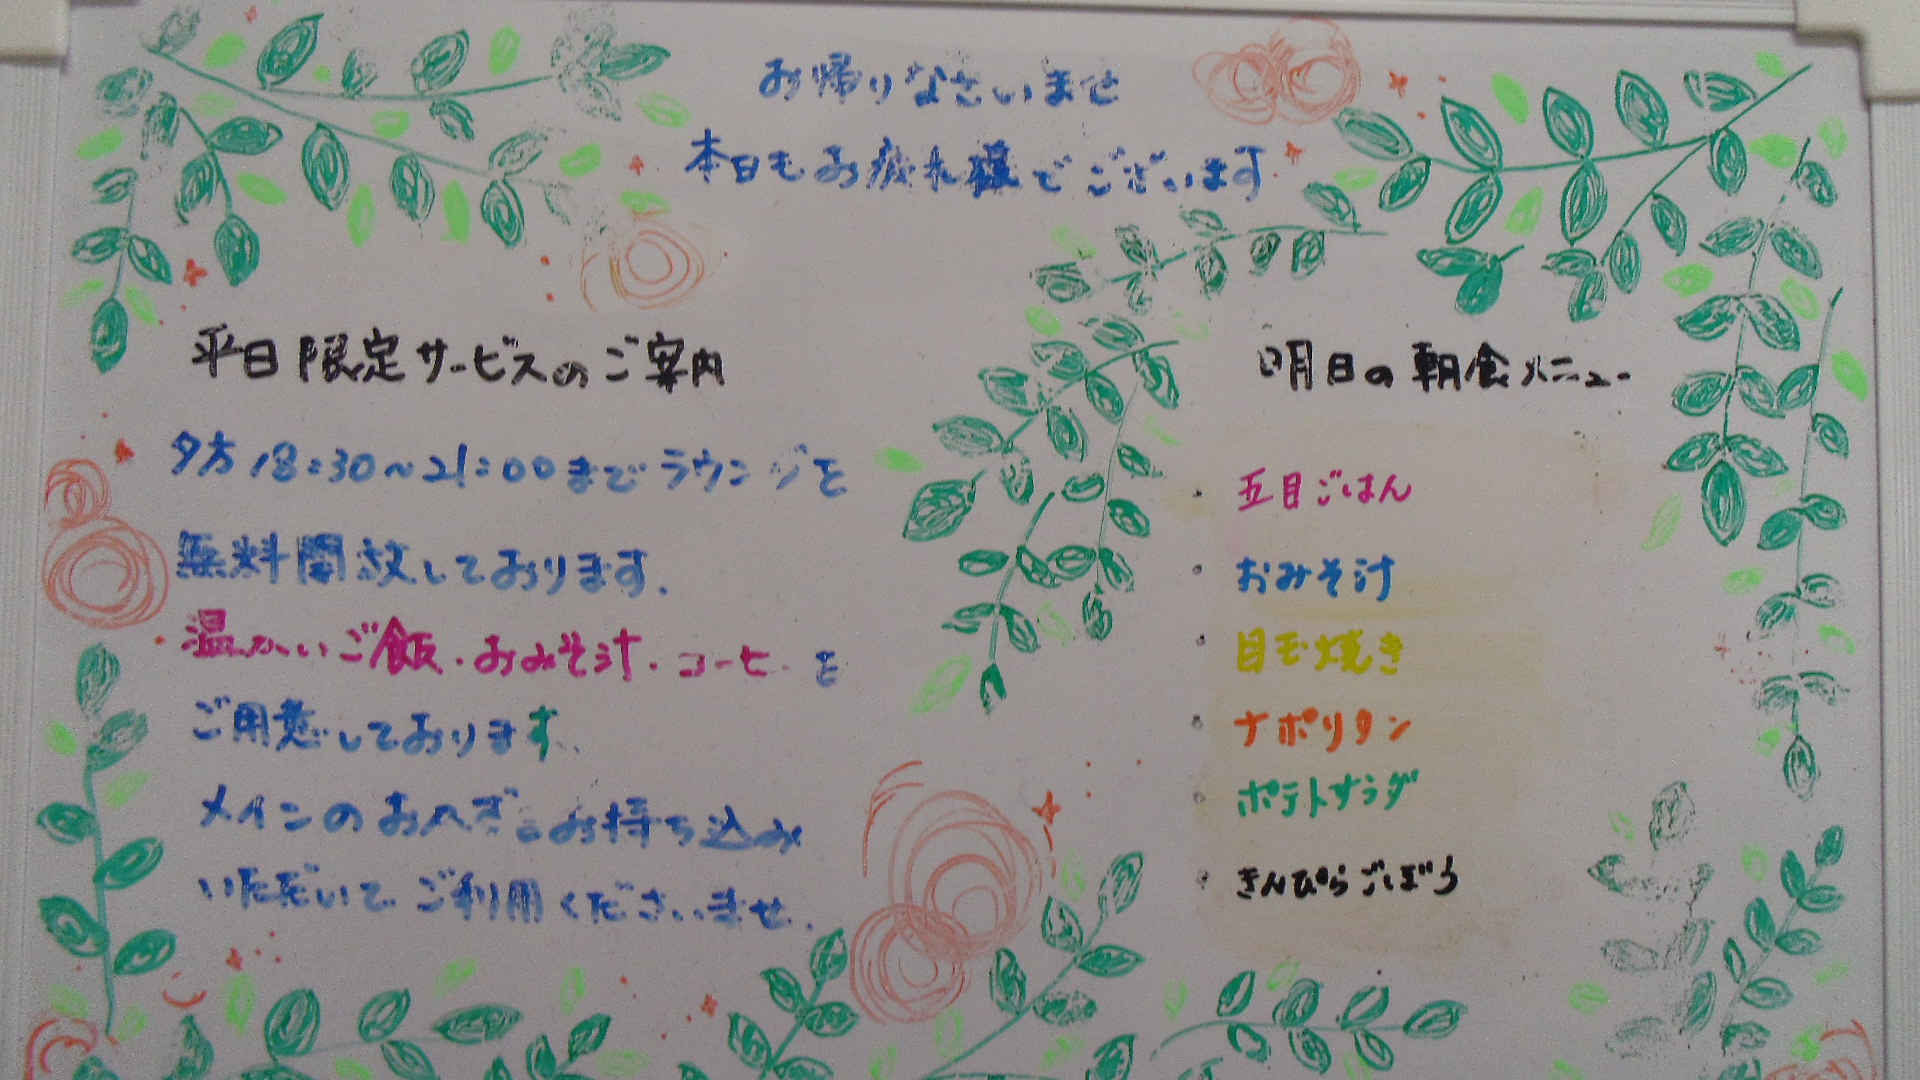 お帰りなさいませ
本日もお疲れ様でございます
平日限定サービスのご案内
夕方18:30~21:00までラウンジを
無料開放しております.
温かいご飯・おみそ汁・コーヒーを
ご用意しております、
メインのおかずをお持ち込み
いただいてご利用くださいませ.
明日の朝食メニュー
・五目ごはん
・おみそ汁
・目玉焼き
・ナポリタン
・ポテトサラダ
・きんぴらごぼう